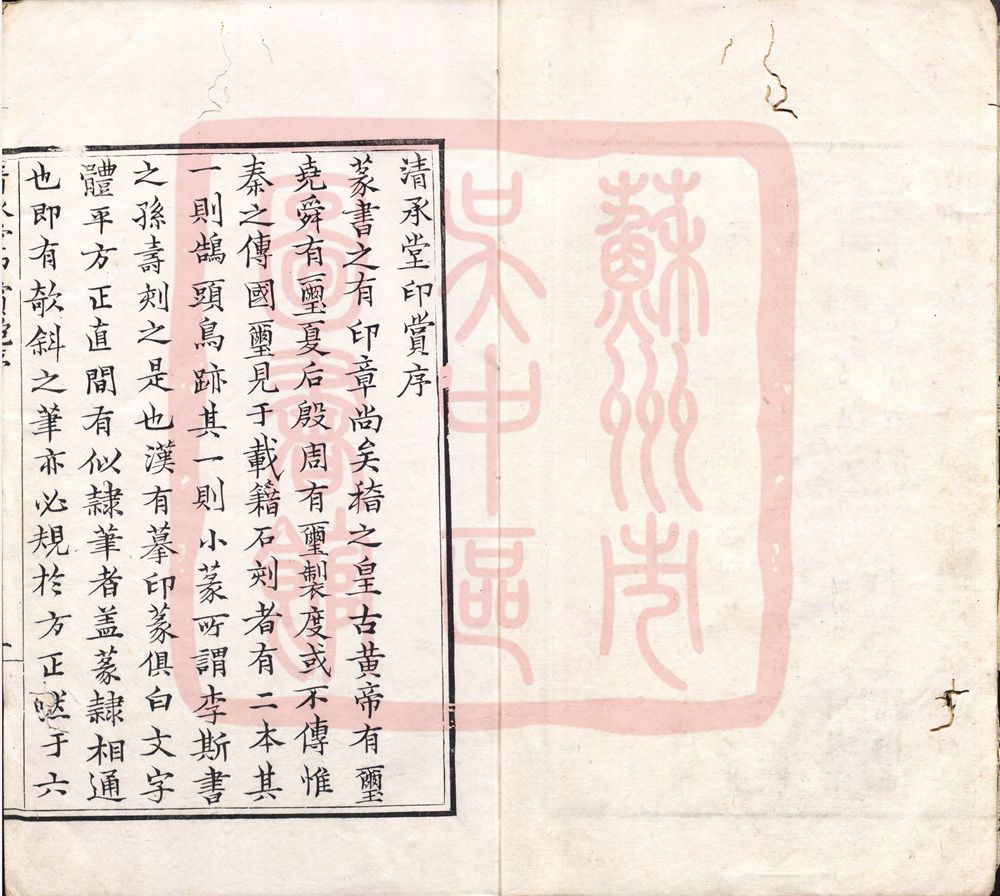 清承堂印賞序
篆書之有印章尚矣稽之皇古黄帝有璽
堯舜有璽夏后殷周有璽製度或不傳惟
秦之傳國璽見于載籍石刻者有二本其
一則鵠頭鳥跡其一則小篆所謂李斯書
之孫壽刻之是也漢有摹印篆俱白文字
體平方正直間有似隷筆者盖篆隷相通
也即有欹斜之筆亦必規於方正然于六
蘇州市
吴中區
圖書館